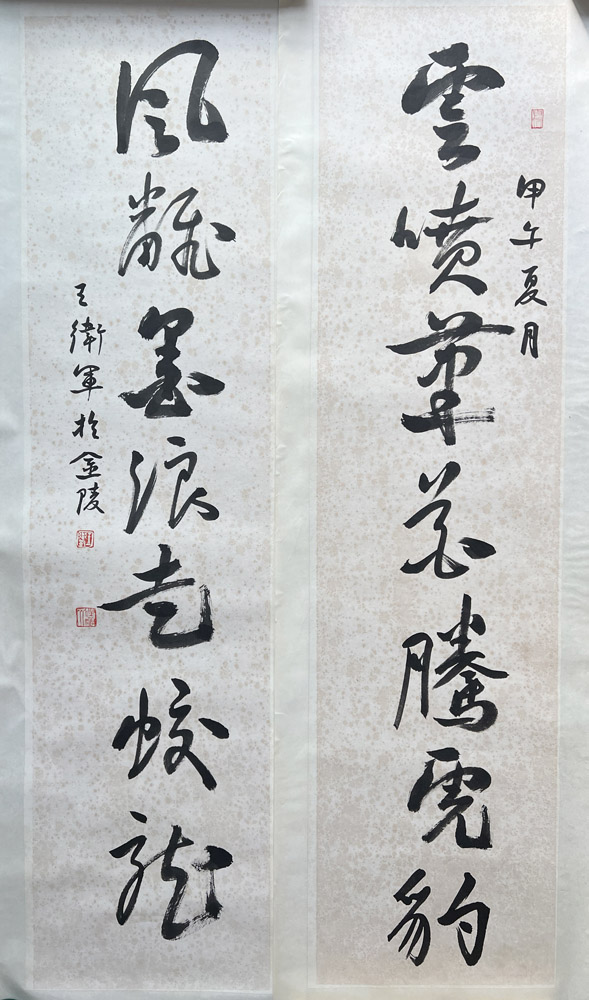 甲午夏月
雲噴筆花騰虎豹
風飜墨浪走蛟龍
王衛軍於金陵